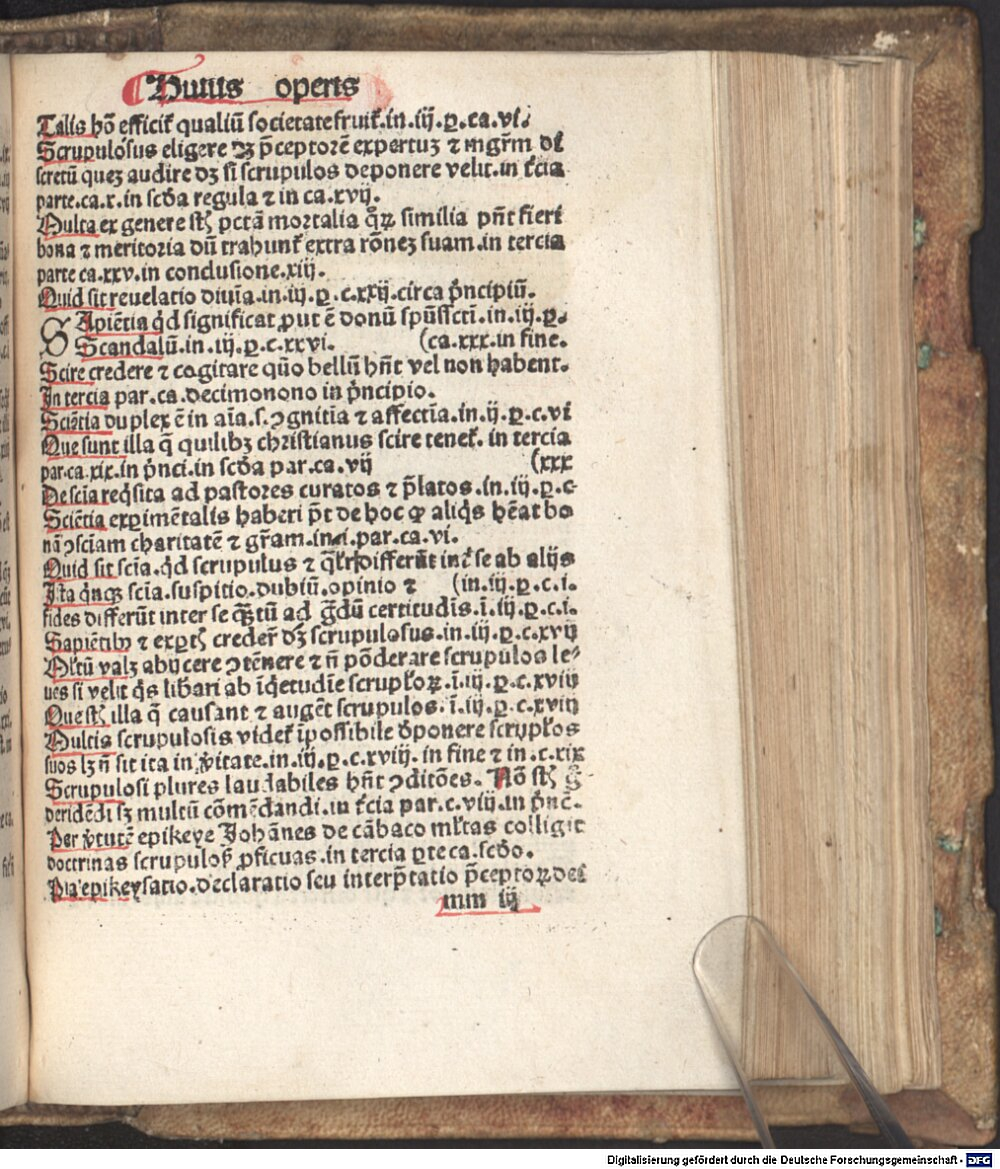 Huius operis
Talis hō efficit᷑ qualiū societate fruit᷑.in.iij.ꝑ.ca.vi.
Scrupulosus eligere dꝫ p̄ceptorē expertuꝫ ⁊ mgr̄m di
scretū queꝫ audire dꝫ si scrupulos deponere velit.in t᷑cia
parte.ca.x.in scd̄a regula ⁊ in ca.xvij.
Multa ex genere st̄ pctā mortalia qͦꝝ similia pn̄t fieri
bona ⁊ meritoria dū trahunt᷑ extra rōneꝫ suam.in tercia
parte ca.xxv.in conclusione.xiij.
Quid sit reuelatio diuīa.in.iij.ꝑ.c.xxij.circa p̄ncipiū.
SApiētia qd̄ significat ꝓut ē donū spūssctī.in.iij.ꝑ.
Scandalū.in.iij.ꝑ.c.xxvi. (ca.xxx.in fine.
Scire credere ⁊ cogitare quō bellū hn̄t vel non habent.
In tercia par.ca.decimonono in p̄ncipio.
Sciētia duplex ē in aīa.s.ꝯgnitīa ⁊ affectīa.in.ij.ꝑ.c.vi
Que sunt illa q̄ quilibꝫ christianus scire tenet᷑. in tercia
par.ca.xix.in p̄nci.in scd̄a par.ca.vij (xxx
De scīa reqͥsita ad pastores curatos ⁊ p̄latos.in.iij.ꝑ.c
Sciētia exꝑimētalis haberi pt̄ de hoc ꝙ aliqͥs hēat bo
nā ꝯsciam charitatē ⁊ gr̄am.in.i.par.ca.vi.
Quid sit scīa.qd̄ scrupulus ⁊ differūt int᷑ se ab alijs
Ita scīa.suspitio.dubiū.opinio ⁊ (in.iij.ꝑ.c.i.
fides differūt inter se qͣꝫtū ad gͣdū certitudīs.ī.iij.ꝑ.c.i.
Sapiētibꝰ ⁊ exꝑtꝭ creder̄ dꝫ scrupulosus.in.iij.ꝑ.c.xvij
Ml̄tū valꝫ abijcere ꝯtēnere ⁊ n̄ pōderare scrupulos le⸗
ues si velit qͥs lib̄ari ab īqͥetudīe scrupl̄oꝝ.ī.iij.ꝑ.c.xviij
Que st̄ illa q̄ causant ⁊ augēt scrupulos.ī.iij.ꝑ.c.xviij
Multis scrupulosis videt᷑ īpossibile dͤponere scrupl̄os
suos lꝫ n̄ sit ita in v̄itate.in.iij.ꝑ.c.xviij. in fine ⁊ in.c.xix
Scrupulosi plures laudabiles hn̄t ꝯditōes. Nō st̄ gͦ
deridēdi sꝫ multū cōmēdandi.in t᷑cia par.c.viij.in p̄nc̄.
Per v̄tutē epikeye Johānes de cābaco ml̄tas colligit
doctrinas scrupulosꝭ ꝓficuas.in tercia ꝑte ca.scd̄o.
Pia epikeysatio.declaratio seu interp̄tatio p̄ceptoꝝ dei
mm iij
Digitalisierung gefördert durch die Deutsche Forschungsgemeinschaft - DFG